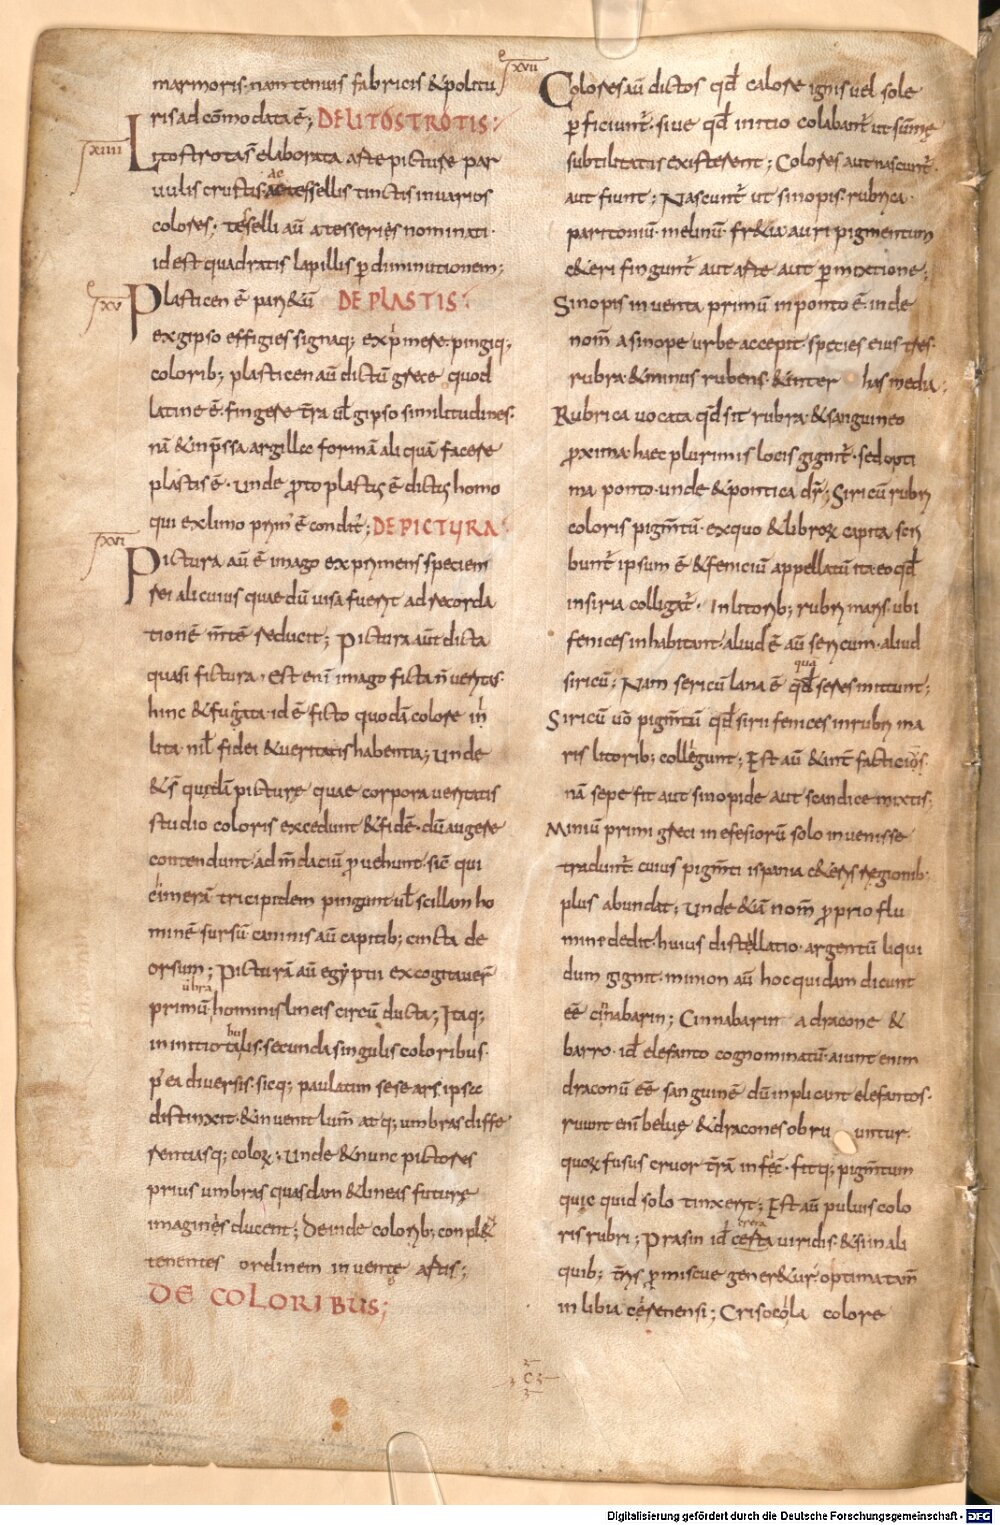 marmoris nam tenuis fabricis &politu
ris adcõmodata ē; DE LITOSTROTIS:
xiiii
Litostrota s̄ elaborata arte picture par
vulis crustis ac tessellis tinctis invarios
colores; teselli aū atesseriẹs nominati
id est quadratis lapillis p diminutionem;
xv
Plasticen ē pari&ū DE PLASTIS:
exgipso effigies signaq; exprimere pingiq;
colorib; plasticen aū dictū grece quod
latine ē fingere t̄ra ul gipso similitudines.
nā &inp̄ssa argilla formā aliquā facere
plastis ē. unde protoplastus ē dictus homo
qui exlimo primꝰ ē conditꝰ; DE PICTURA
xvi
Pictura aū ē imago exprimens speciem
rei alicuius quae dū visa fuerit ad recorda
tionē m̄tē reducit; pictura aut dicta
quasi fictura. est enī imago ficta n̄ veritas
hinc &fugata id ē ficto quodā colore in
lita nil fidei &veritatis habentia; unde
&s̄ quędā picturę quae corpora veritatis
studio coloris excedunt &fidē dū augere
contendunt ad m̄daciū provehunt sic̄ qui
cimerā tricipitem pingunt ul scillam ho
minē sursū caninis aū capitib; cincta de
orsum; picturā aū egyptii excogitaver̄
ubra
primū hominis lineis circū ducta; Itaq;
in initio talis. secunda singulis coloribus.
p̄ ea diversis. sicq; paulatim sese ars ipsa
distinxit &invenit lum̄ atq; umbras diffe
rentiasq; coloꝝ; unde &nunc pictores
prius umbras quasdam &lineas futurę
imagines ducent; deinde colorib; conpl&
tenentes ordinem inventę artis;
DE COLORIBUS;
xvii
Colores aū dictos qd calore ignis vel sole
p̄ficiunt̄. sive qd initio colabant̄ ut sūmę
subtilitatis existerent; Colores aut nascunt̄
aut fiunt; Nascunt̄ ut sinopis. rubrica.
paritoniū melinū. fr&ia auri pigmentum
c&eri fingunt̄ aut arte aut p̄mixtione;
Sinopis inventa primū in ponto ē. inde
nom̄ asinope urbe accepit. species eius tres.
rubra &minus rubens &inter has media;
Rubrica vocata qd sit rubra &sanguineo
proxima haec plurimis locis gignit̄. sed opti
ma ponto unde &pontica dr̄; Siricū rubri
coloris pigm̄tū. exquo &libroꝝ capita scri
bunt̄ ipsum ē &feniciū appellatū ita eo qd
insiria colligat̄. Inlitorib; rubri maris. ubi
fenices inhabitant. aliud ē aū sericum. aliud
qua
siricū; Nam sericū lana ē qd seres mittunt;
Siricū vō pigm̄tū qd sirii fenices inrubri ma
ris litorib; collegunt; Est aū &int̄ facticios
nā sepe fit aut sinopide aut scandice mixtis;
Miniū primi greci in efesiorū solo invenisse
tradunt̄ cuius pigm̄ti ispania c&eris regionib;
plus abundat; unde &iā nom̄ proprio flu
mine dedit. huius distellatio argentū liqui
dum gignit. minion aū hoc quidam dicunt
eē cinabarin; Cinnabarin adracone &
barro. id elefanto cognominatū aiunt enim
draconū eē sanguinē dū inplicant elefantos.
ruunt enī beluę &dracones obru untur.
quoꝝ fusus cruor t̄rā infec̄. fitq; pigm̄tum
quic quid solo tinxerit; Est aū pulvis colo
ris rubri; Prasin id cesta viridis. &si in ali
quib; t̄ris promiscue gener&ur optima tam̄
in libia cerenensi; Crisocola colore